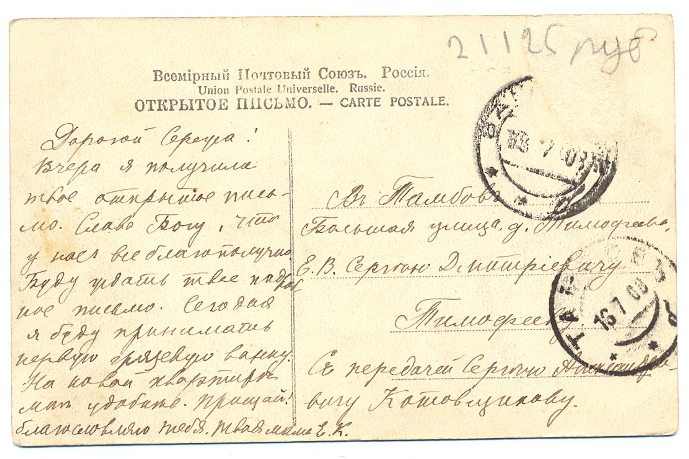 21125 руб
Всемірный Почтовый Союзъ. Россія.
Union Postale Universelle. Russie.
ОТКРЫТОЕ ПИСЬМО. — CARTE POSTALE.
Дорогой Сережа!
Вчера я получила
твое открытое пись-
мо. Слава Богу, что
у насъ все благополучно
Буду ждать твое подроб
ное письмо. Сегодня
я буду принимать
первую грязевую ванну.
На новой квартире
мнѣ удобнѣе. Прощай!
благословляю тебя. Твоя мама Е. К.
Въ Тамбовъ
Большая улица, д. Тимофеева,
Е. В. Сергѣю Дмитріевичу
Тимофееву
Съ передачей Сергѣю Александро-
вичу Котовщикову.
7 08
ТАМБОВЪ
16 7 08